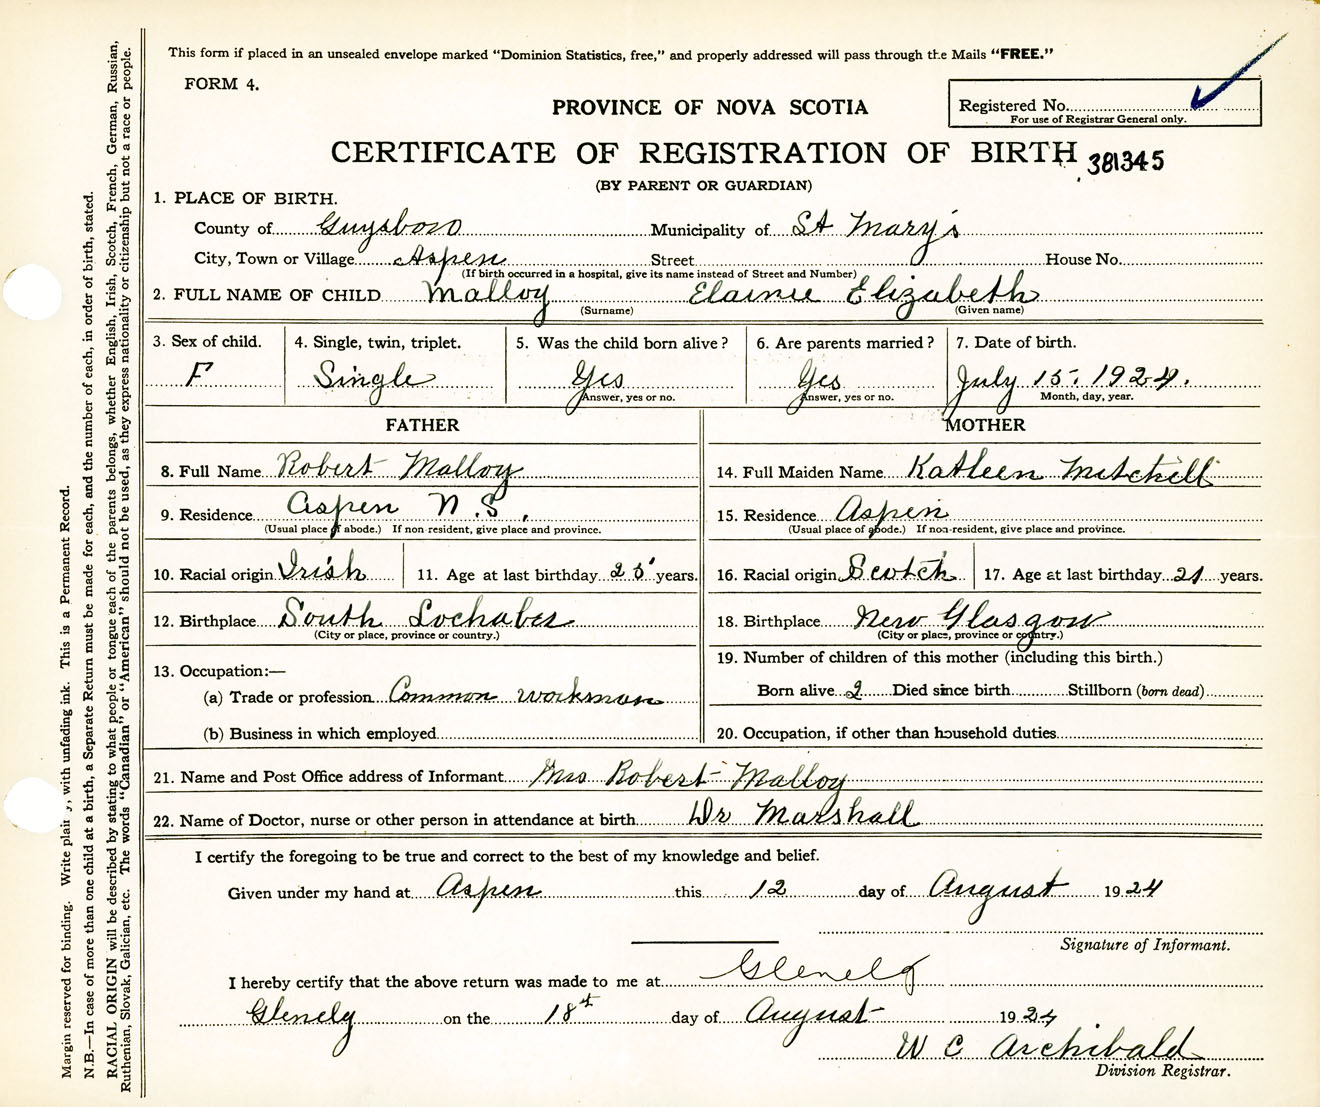 This form if placed in an unsealed envelope marked “Dominion Statistics, free,” and properly addressed will pass through the Mails “FREE.”
FORM 4.
PROVINCE OF NOVA SCOTIA
Registered No.
For use of Registrar General only.
CERTIFICATE OF REGISTRATION OF BIRTH 381345
(BY PARENT OR GUARDIAN)
1. PLACE OF BIRTH.
County of Guysboro Municipality of St Mary's
City, Town or Village Aspen Street House No.
(If birth occurred in a hospital, give its name instead of Street and Number)
2. FULL NAME OF CHILD Malloy Elainie Elizabeth
(Surname) (Given name)
3. Sex of child. 4. Single, twin, triplet. 5. Was the child born alive? 6. Are parents married? 7. Date of birth.
F Single Yes Yes July 15, 1924.
Answer, yes or no. Answer, yes or no. Month, day, year.
FATHER MOTHER
8. Full Name Robert Malloy 14. Full Maiden Name Kathleen Mitchell
9. Residence Aspen N.S. 15. Residence Aspen
(Usual place of abode.) If non-resident, give place and province. (Usual place of abode.) If non-resident, give place and province.
10. Racial origin Irish 11. Age at last birthday 25 years. 16. Racial origin Scotch 17. Age at last birthday 21 years.
12. Birthplace South Lochaber 18. Birthplace New Glasgow
(City or place, province or country.) (City or place, province or country.)
13. Occupation:— 19. Number of children of this mother (including this birth.)
(a) Trade or profession Common workman Born alive 2 Died since birth Stillborn (born dead)
(b) Business in which employed 20. Occupation, if other than household duties
21. Name and Post Office address of Informant Mrs Robert Malloy
22. Name of Doctor, nurse or other person in attendance at birth Dr Marshall
I certify the foregoing to be true and correct to the best of my knowledge and belief.
Given under my hand at Aspen this 12 day of August 1924
Signature of Informant.
I hereby certify that the above return was made to me at Glenelg
Glenelg on the 18th day of August 1924
W C Archibald
Division Registrar.
Margin reserved for binding. Write plainly, with unfading ink. This is a Permanent Record.
N.B.—In case of more than one child at a birth, a Separate Return must be made for each, and the number of each, in order of birth, stated.
RACIAL ORIGIN will be described by stating to what people or tongue each of the parents belongs, whether English, Irish, Scotch, French, German, Russian,
Ruthenian, Slovak, Galician, etc. The words “Canadian” or “American” should not be used, as they express nationality or citizenship but not a race or people.